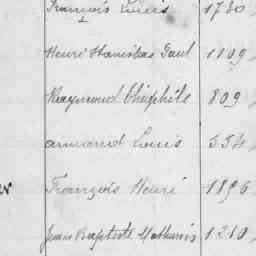 François Louis 1730
Henri Stanislas Paul 1109
Raymond Théophile 809
armand Louis 554
François Henri 1896
Jean Baptiste Mathurin 1310